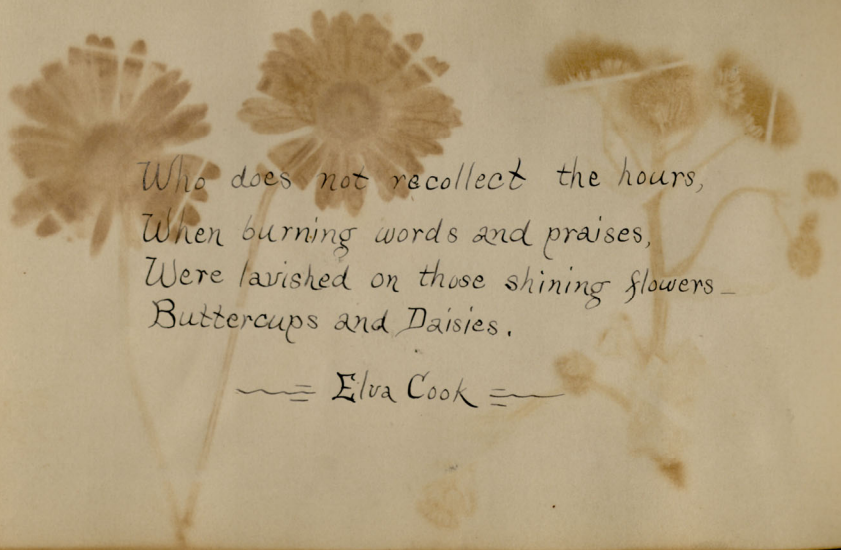 Who does not recollect the hours,
When burning words and praises,
Were lavished on those shining flowers_
Buttercups and Daisies.
Elva Cook